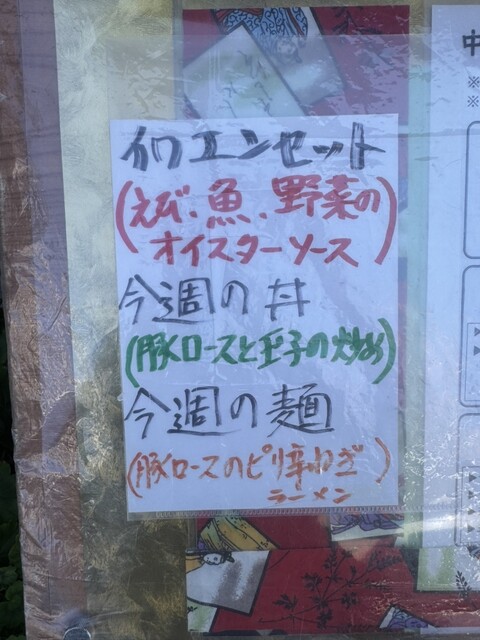 イワエンセット
(えび、魚、野菜の
オイスターソース)
今週の丼
(豚ロースと玉子の炒め)
今週の麺
(豚ロースのピリ辛ねぎ)
ラーメン
中
※
※